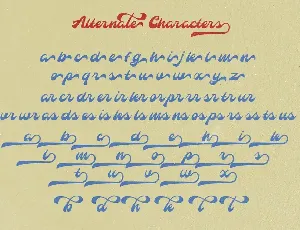 Alternate Characters
a b c d e f g h i j k l m n
o p q r s t u v w x y z
ar cr dr er ir kr or pr rr sr tr ur
vr wr as ds es is ks ls ms ns os ps rs ss ts us
a b a d e h i k
i m n o p r s
t u v w x
b d h k l t